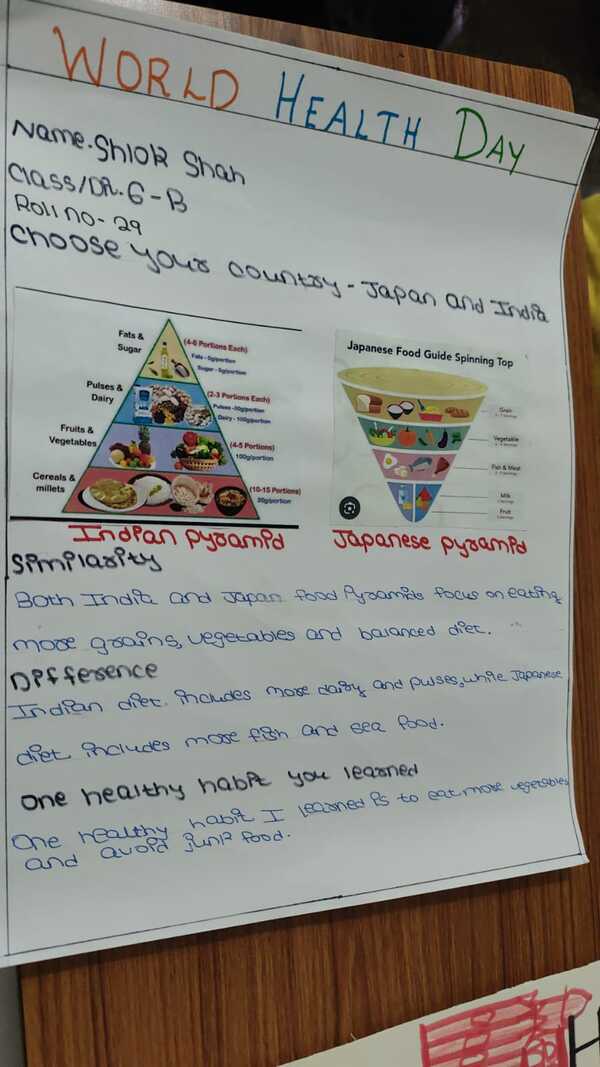 WORLD HEALTH DAY
Name. Shlok Shah
Class/Div. 6-B
Roll no- 29
Choose your country - Japan and India
Fats &
Sugar
(4-6 Portions Each)
Fats - 5g/portion
Sugar - 5g/portion
Pulses &
Dairy
(2-3 Portions Each)
Pulses -30g/portion
Dairy - 100g/portion
Fruits &
Vegetables
(4-5 Portions)
100g/portion
Cereals &
millets
(10-15 Portions)
30g/portion
Indian pyramid
Japanese Food Guide Spinning Top
Grain
Vegetable
Fish & Meat
Milk
Fruit
Japanese pyramid
Similarity
Both India and Japan food Pyramids focus on eating
more grains, vegetables and balanced diet.
Difference
Indian diet includes more dairy and pulses, while Japanese
diet includes more fish and sea food.
One healthy habit you learned
One healthy habit I learned is to eat more vegetables
and avoid junk food.